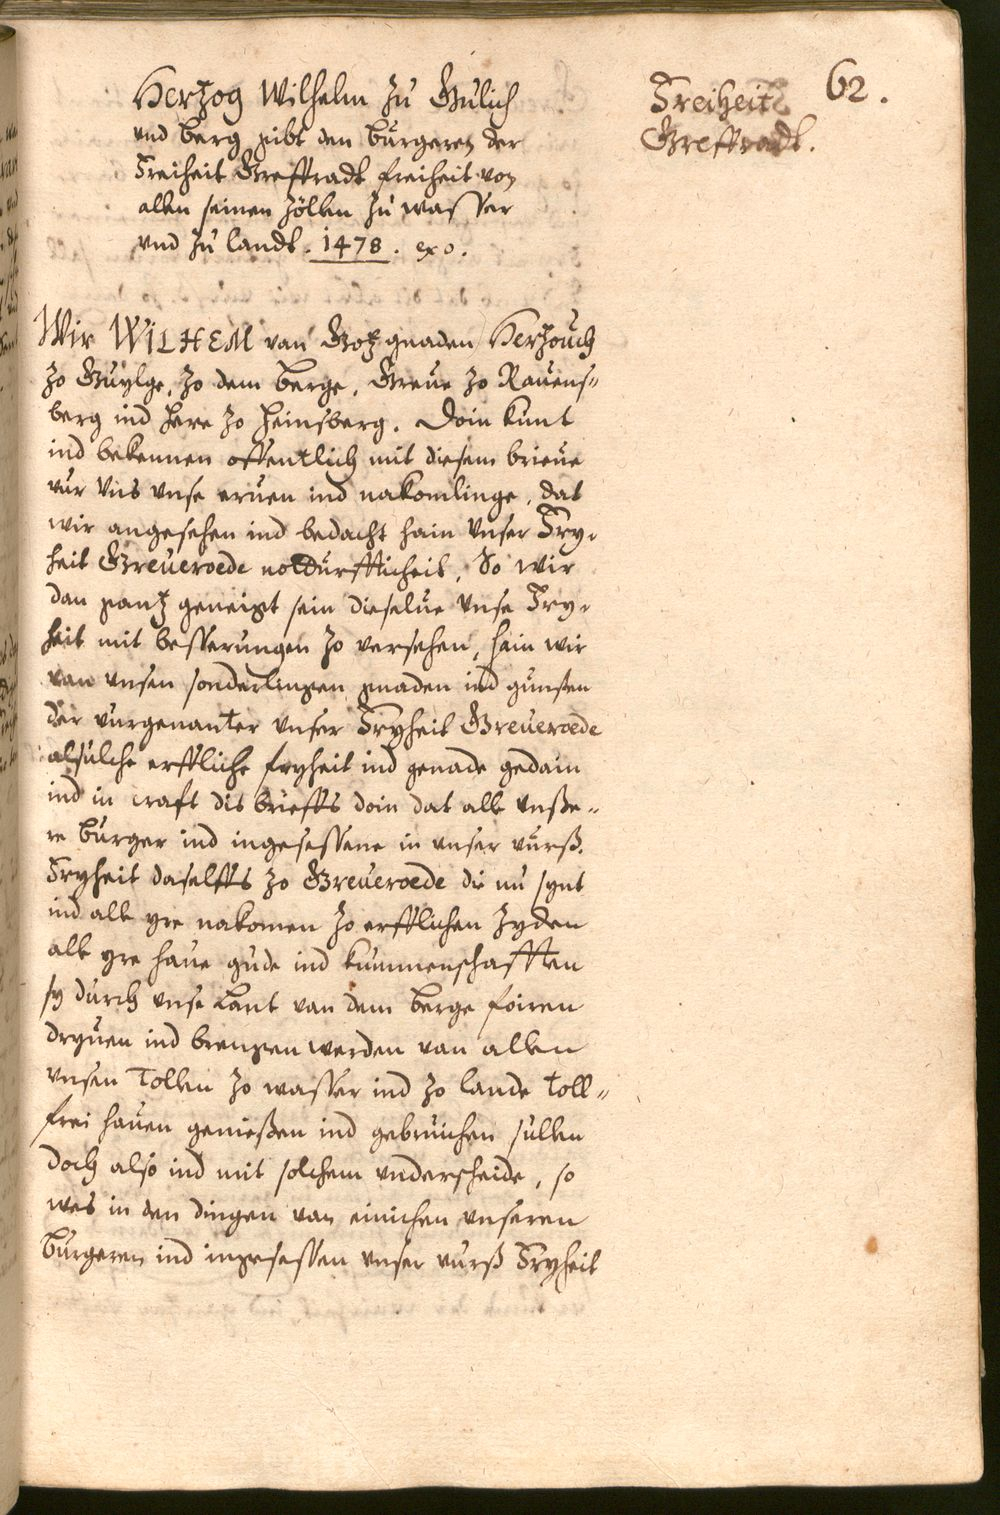 62.
Freiheit
Greffradt.
Herzog Wilhelm zu Gulich
vnd Berg gibt den Burgeren der
Freiheit Greffradt freiheit von
allen seinen Zöllen zu wasser
vnd zu landt. 1478. exo.
Wir WILHEM van Gotz gnaden Herzouch
zo Guylge, zo dem Berge, Greue zo Rauens„
berg ind Here zo Heinsberg. Doin kunt
ind bekennen offentlich mit diesem brieue
vur Vns vnse eruen ind nakomlinge, dat
wir angesehen ind bedacht hain vnser Fry„
heit Greueroede notturffticheit, So wir
dan gantz geneigt sein dieselue vnse Fry„
heit mit besserungen zo versehen, hain wir
van vnsen sonderlingen gnaden ind gunsten
der vurgenanter vnser Fryheit Greueroede
alsulche erffliche fryheit ind genade gedain
ind in craft dis brieffs doin dat alle vnße„
re burger ind ingesessene in vnser vurß.
Fryheit daselffs zo Greueroede die nu synt
ind alle yre nakomen zo erfflichen zyden
alle yre haue gude ind kummenschafften
sy durch vnse Lant van dem Berge foiren
dryuen ind brengen werden van allen
vnsen Tollen zo wasser ind zo lande toll„
frei hauen genießen ind gebruichen sullen
doch also ind mit solchem vnderscheide, so
wes in den dingen van einichen vnseren
Burgeren ind ingesessen vnser vurß Fryheit